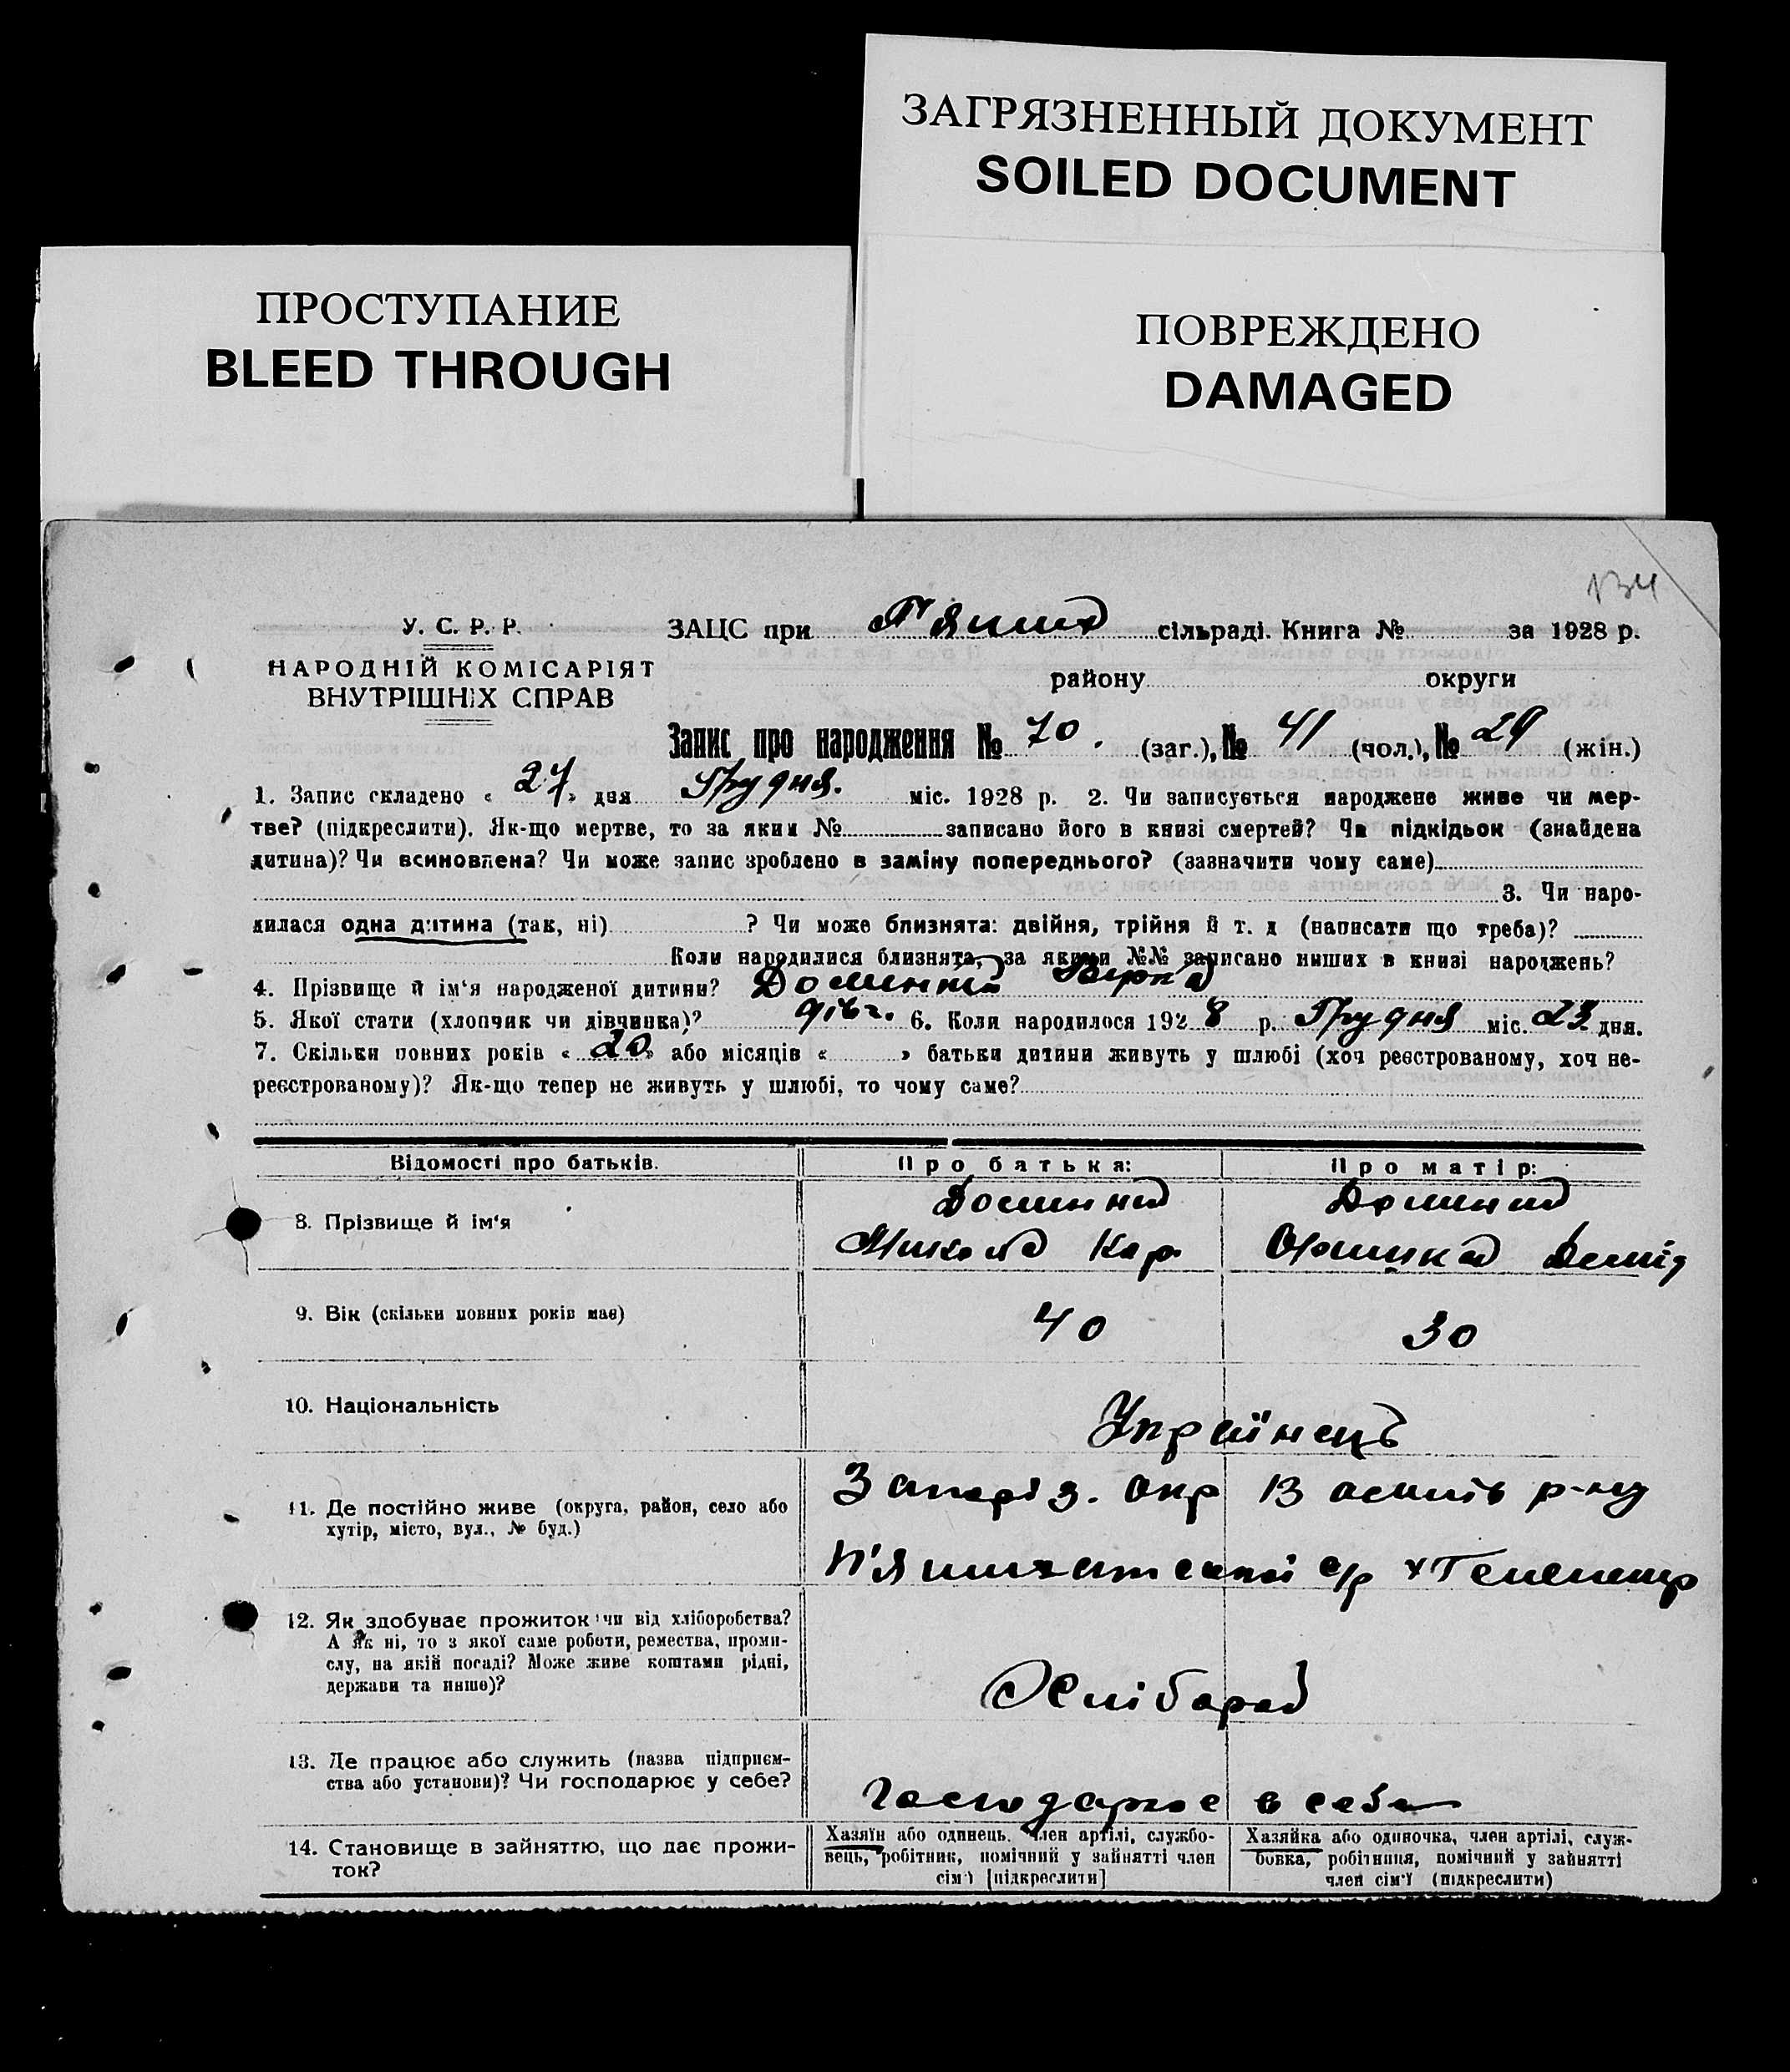 ЗАГРЯЗНЕННЫЙ ДОКУМЕНТ
SOILED DOCUMENT
ПРОСТУПАНИЕ
BLEED THROUGH
ПОВРЕЖДЕНО
DAMAGED
У. С. Р. Р.
НАРОДНІЙ КОМІСАРІЯТ
ВНУТРІШНІХ СПРАВ
ЗАЦС при сільраді. Книга № за 1928 р.
району округи
Запис про народження № 70. (заг.), № 41 (чол.), № 29 (жін.)
1. Запис складено « 27 » дня Грудня. міс. 1928 р. 2. Чи записується народжене живе чи мер-
тве? (підкреслити). Як-що мертве, то за яким № записано його в книзі смертей? Чи підкідьок (знайдена
дитина)? Чи всиновлена? Чи може запис зроблено в заміну попереднього? (зазначити чому саме)
3. Чи наро-
дилася одна дитина (так, ні) ? Чи може близнята: двійня, трійня й т. д (написати що треба)?
Коли народилися близнята, за якими №№ записано инших в книзі народжень?
4. Прізвище й ім'я народженої дитини?
5. Якої стати (хлопчик чи дівчинка)? дівч. 6. Коли народилося 1928 р. Грудня міс. 23 дня.
7. Скільки повних років « 20 » або місяців « » батьки дитини живуть у шлюбі (хоч реєстрованому, хоч не-
реєстрованому)? Як-що тепер не живуть у шлюбі, то чому саме?
Відомості про батьків. Про батька: Про матір:
8. Прізвище й ім'я
Микола Кар Оришка Демід
9. Вік (скільки повних років має) 40 30
10. Національність Українець
11. Де постійно живе (округа, район, село або
хутір, місто, вул., № буд.)
Запоріз. окр Васили р-ну
П'яшихатської с/р
12. Як здобуває прожиток чи від хліборобства?
А як ні, то з якої саме роботи, ремества, проми-
слу, на якій посаді? Може живе коштами рідні,
держави та инше)?
Хлібороб
13. Де працює або служить (назва підприєм-
ства або установи)? Чи господарює у себе?
Господарює в себе
14. Становище в зайняттю, що дає прожи-
ток?
Хазяїн або одинець, член артілі, службо-
вець, робітник, помічний у зайнятті член
сім'ї [підкреслити]
Хазяйка або одиночка, член артілі, служ-
бовка, робітниця, помічний у зайнятті
член сім'ї (підкреслити)